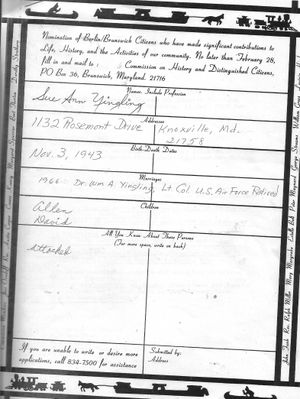 Nomination of Berlin/Brunswick Citizens who have made significant contributions to
Life, History, and the Activities of our community. No later than February 28,
fill in and mail to : Commission on History and Distinguished Citizens,
PO Box 36, Brunswick, Maryland. 21716
Name, Include Profession
Sue Ann Yingling
Addresses
1132 Rosemont Drive Knoxville, Md.
21758
Birth-Death Dates
Nov. 3, 1943
Marriages
1966 - Dr. Wm A Yingling, Lt Col. U.S. Air Force Retired
Children
Allen
David
All You Know About These Persons
(For more space, write on back)
Attached
If you are unable to write or desire more
applications, call 834-7500 for assistance
Submitted by:
Address